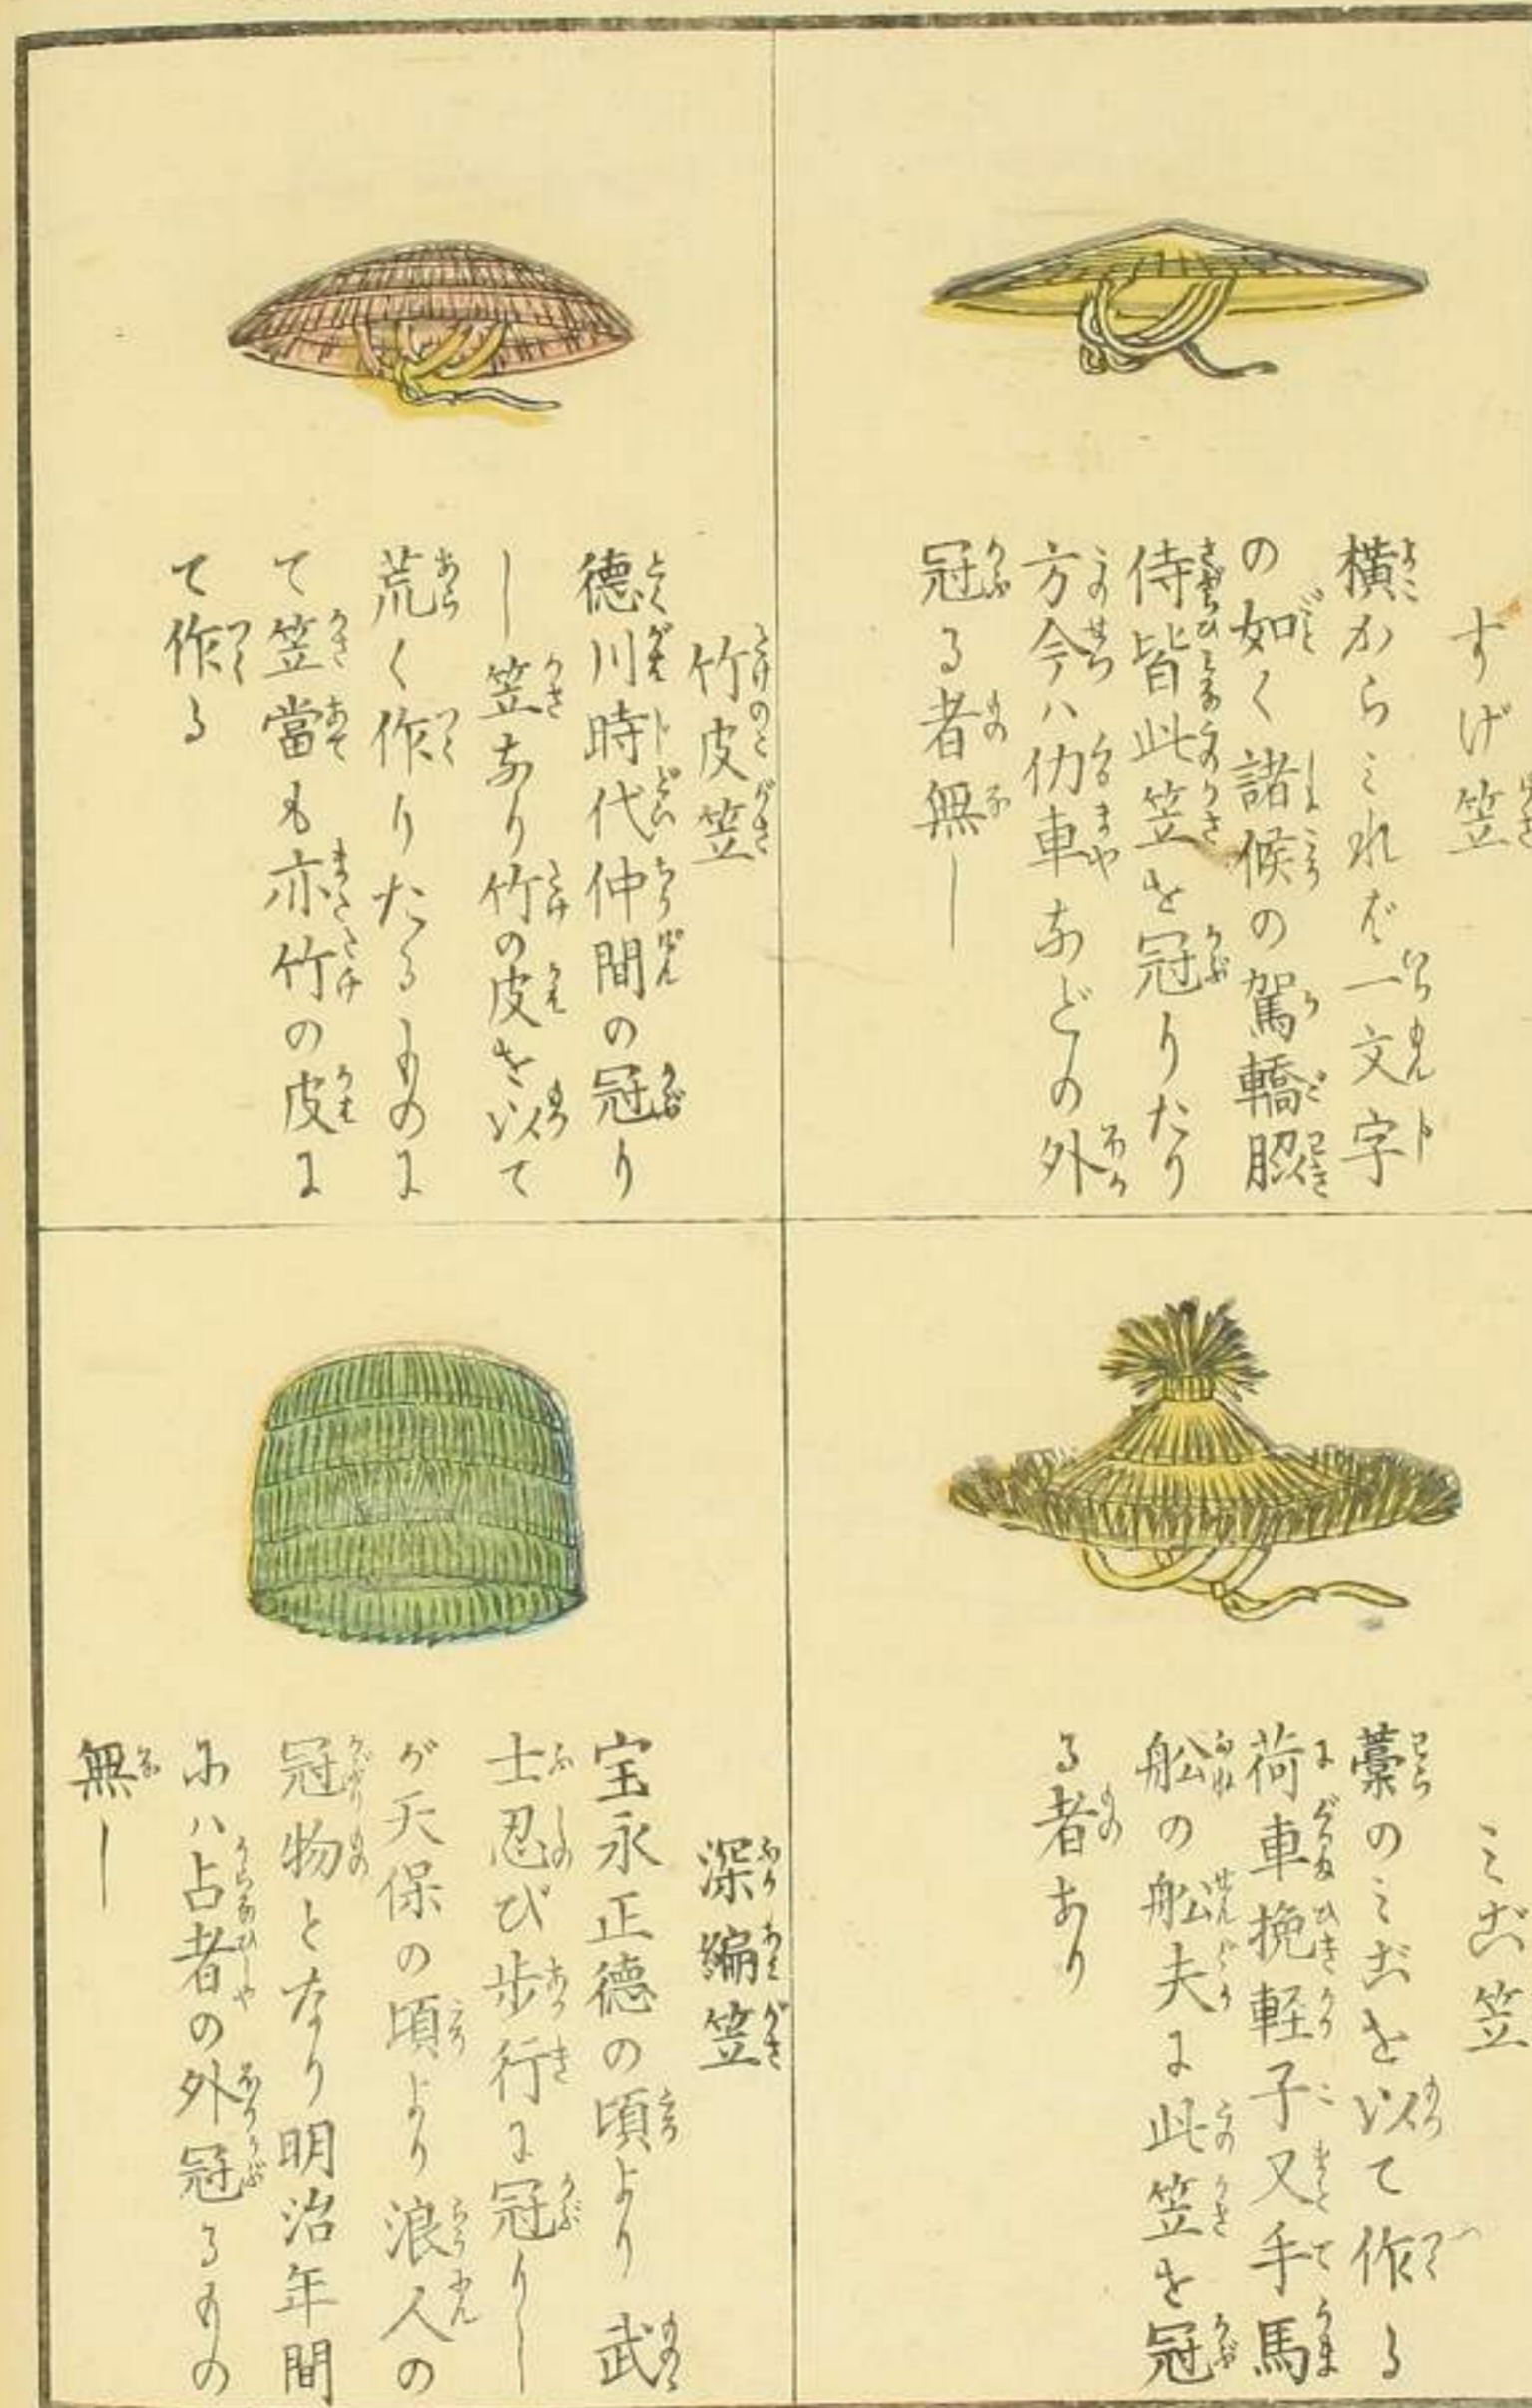 すげ笠
横からミれバ一文字
の如く諸候の駕轎脇
侍皆此笠を冠りたり
方今ハ仂車あどの外
冠る者無し
竹皮笠
徳川時代仲間の冠り
し笠あり竹の皮を以て
荒く作りたるものに
て笠當も亦竹の皮に
て作る
ミご笠
藁のミごを以て作る
荷車挽軽子又手馬
舩の舩夫に此笠を冠
る者あり
深編笠
宝永正徳の頃より武
士忍び歩行に冠りし
が天保の頃より浪人の
冠物となり明治年間
にハ占者の外冠るもの
無し